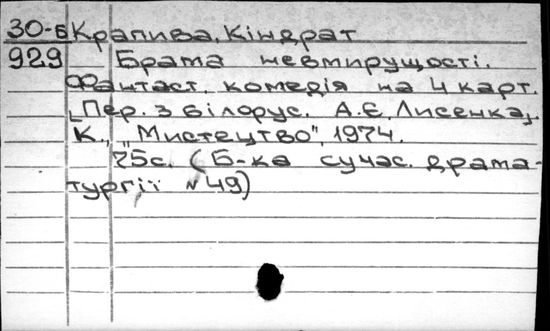 30-Б Крапива, Кіндрат
929 Брама невмирущості.
Фантаст. комедія на 4 карт.
[Пер. з білорус. А.Є. Лисенка].
К., "Мистецтво", 1974.
75с. (Б-ка сучас. драма-
тургії №49)